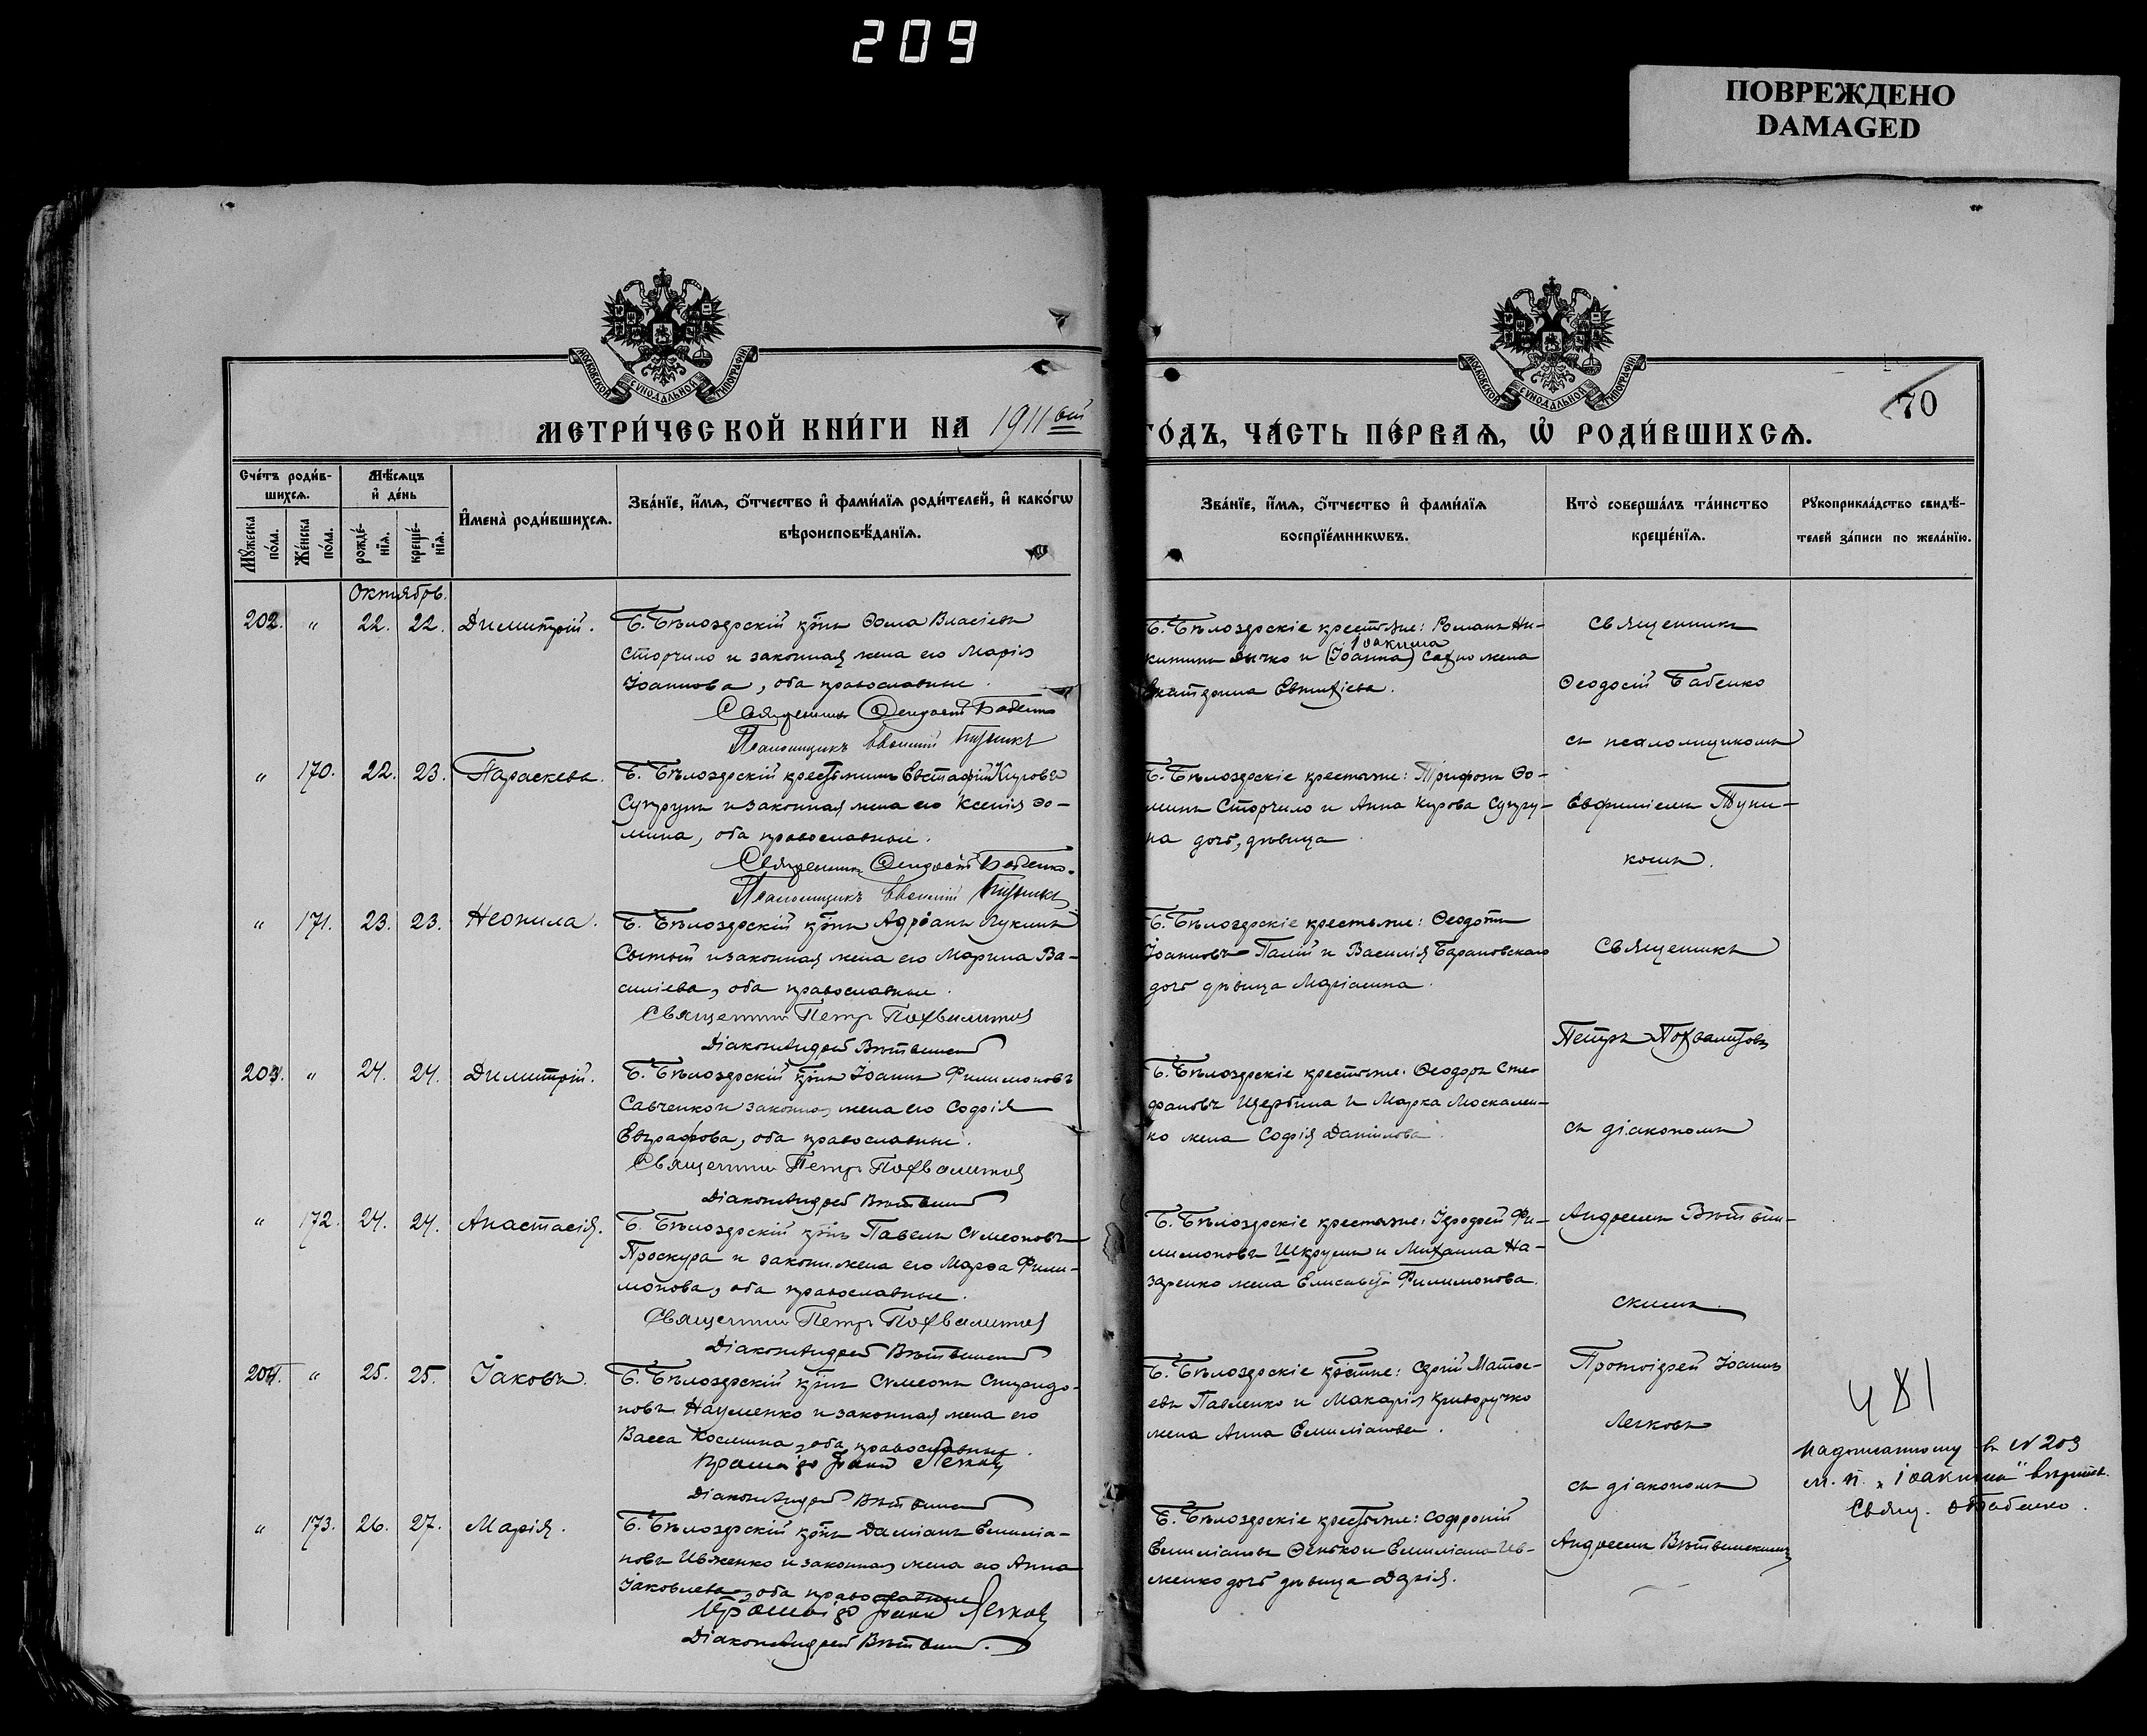 209
ПОВРЕЖДЕНО
DAMAGED
МОСКОВСКОЙ СУНОДАЛЬНОЙ ТИПОГРАФІИ
МОСКОВСКОЙ СУНОДАЛЬНОЙ ТИПОГРАФІИ
70
МЕТРИ́ЧЕСКОЙ КНИ́ГИ НА 1911ый
ГО́ДЪ, ЧА́СТЬ ПЕ́РВАѦ, Ѡ҆ РОДИ́ВШИХСѦ.
Сче́тъ роди́в-
шихсѧ.
Мꙋ́жеска по́ла.
Же́нска по́ла.
Мѣ́сѧцъ
и҆ де́нь
рожде́-нїѧ.
креще́-нїѧ.
И҆мена̀ роди́вшихсѧ.
Зва́нїе, и҆́мѧ, ѻ҆́тчество и҆ фами́лїѧ роди́телей, и҆ како́гѡ
вѣроисповѣ́данїѧ.
Зва́нїе, и҆́мѧ, ѻ҆́тчество и҆ фами́лїѧ
воспрїе́мникѡвъ.
Кто̀ соверша́лъ та́инство
креще́нїѧ.
Рꙋкоприкла́дство свидѣ́-
телей за́писи по жела́нїю.
Октябрь.
202. " 22. 22. Димитрій.
Б. Бѣлозерскій кр-нъ Ѳома Власіевъ
Сторчило и законная жена его Марія
Іоаннова, оба православные.
Священникъ Ѳеодосій Бабенко
Псаломщикъ
Б. Бѣлозерскіе крестьяне: Романъ Ни-
Іоакима
китинъ Дычко и (Іоанна) Сахно жена
Екатерина Евтихіева.
Священникъ
Ѳеодосій Бабенко
съ псаломщикомъ
" 170. 22. 23. Параскева.
Б. Бѣлозерскій крестьянинъ Евстафій Кировъ
Супрунъ и законная жена его Ксенія Ѳо-
мина, оба православные.
Священникъ Ѳеодосій Бабенко.
Псаломщикъ
Б. Бѣлозерскіе крестьяне: Трифонъ Ѳо-
минъ Сторчило и Анна Кирова Супру-
на дочь, дѣвица
Евфиміемъ
комъ.
" 171. 23. 23. Неонила.
Б. Бѣлозерскій кр-нъ Адріанъ Лукинъ
Сытый и законная жена его Марина Ва-
силіева, оба православные.
Священникъ Петръ Похвалитовъ
Діаконъ Андрей Вѣтвинскій
Б. Бѣлозерскіе крестьяне: Ѳеодотъ
Іоанновъ Палій и Василія Барановскаго
дочь дѣвица Маріамна.
Священникъ
Петръ Похвалитовъ
203. " 24. 24. Димитрій.
Б. Бѣлозерскій кр-нъ Іоаннъ Филимоновъ
Савченко и законная жена его Софія
Евграфова, оба православные.
Священникъ Петръ Похвалитовъ
Діаконъ Андрей Вѣтвинскій
Б. Бѣлозерскіе крестьяне: Ѳеодоръ Сте-
фановъ Щербина и Марка Москален-
ко жена Софія Данилова.
съ діакономъ
" 172. 24. 24. Анастасія.
Б. Бѣлозерскій кр-нъ Павелъ Сѵмеоновъ
Проскура и законн. жена его Марѳа Фили-
монова, оба православные.
Священникъ Петръ Похвалитовъ
Діаконъ Андрей Вѣтвинскій
Б. Бѣлозерскіе крестьяне: Іеродфей Фи-
лимоновъ Шкрумъ и Михаила На-
заренко жена Елисавета Филимонова.
Андреемъ Вѣтвин-
скимъ.
204. " 25. 25. Іаковъ.
Б. Бѣлозерскій кр-нъ Сѵмеонъ Спиридо-
новъ Науменко и законная жена его
Васса Космина, оба православные.
Протоіер. Іоаннъ Легковъ
Діаконъ Андрей Вѣтвинскій
Б. Бѣлозерскіе кр-стне: Сергій Матѳе-
евъ Павленко и Макарія Криворучко
жена Анна Емиліанова.
Протоіерей Іоаннъ
Легковъ
съ діакономъ
481
Надписанному въ № 203
м. п. "Іоакима" вѣрить.
Свящ. Ѳ. Бабенко.
" 173. 26. 27. Марія.
Б. Бѣлозерскій кр-нъ Даміанъ Емиліа-
новъ Ивженко и законная жена его Анна
Іаковлева, оба православные
Протоіер. Іоаннъ Легковъ
Діаконъ Андрей Вѣтвин.
Б. Бѣлозерскіе крестьяне: Софроній
Емиліановъ Сенько и Емиліана Ив-
женко дочь дѣвица Дарія.
Андреемъ Вѣтвинскимъ